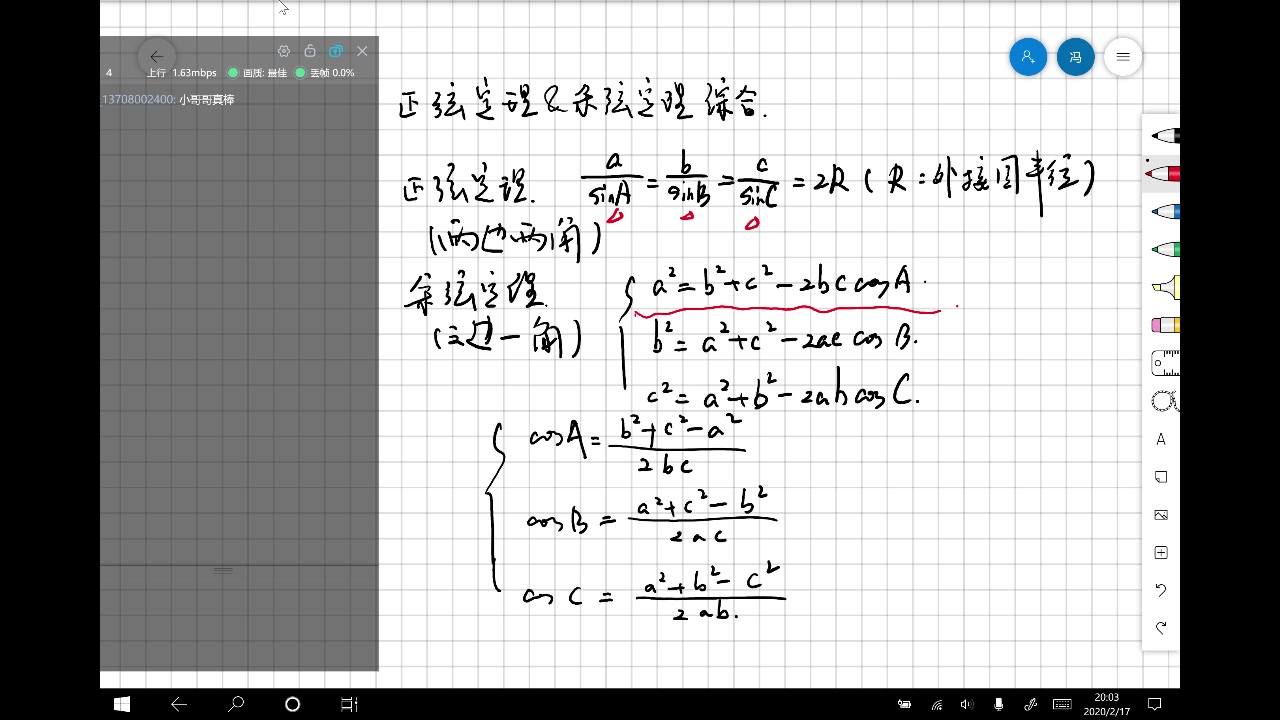 4 上行 1.63mbps 画质: 最佳 丢帧 0.0%
13708002400: 小哥哥真棒
冯
正弦定理&余弦定理综合.
正弦定理. a/sinA = b/sinB = c/sinC = 2R (R:外接圆半径)
(两边两角)
余弦定理. a²=b²+c²-2bc cosA.
(三边一角) b²=a²+c²-2ac cosB.
c²=a²+b²-2ab cosC.
cosA = b²+c²-a² / 2bc
cosB = a²+c²-b² / 2ac
cosC = a²+b²-c² / 2ab.
A
20:03
2020/2/17